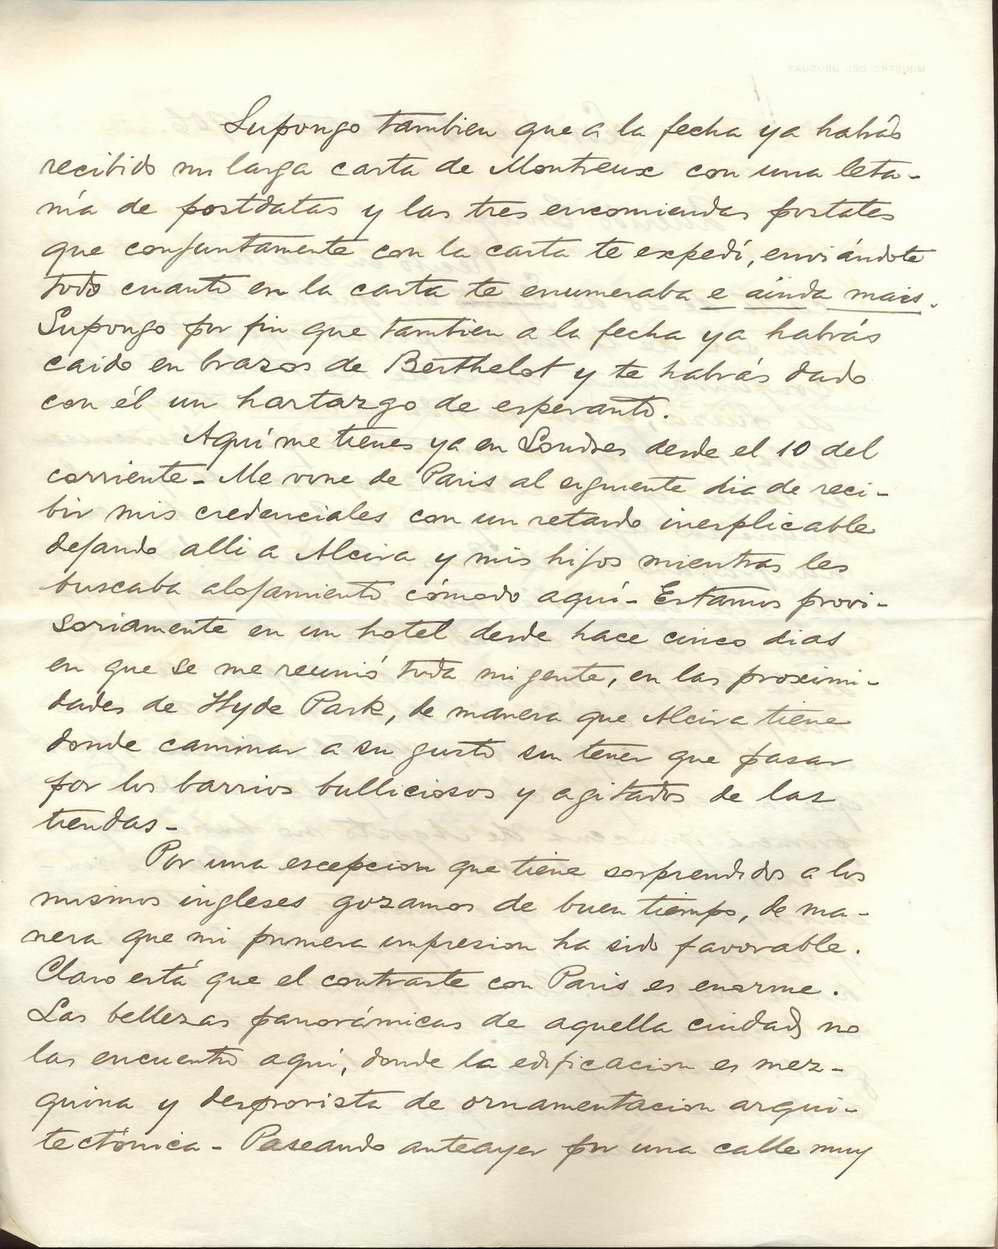 Supongo tambien que a la fecha ya habrás
recibido mi larga carta de Montreux con una leta-
nía de postdatas y las tres encomiendas postales
que conjuntamente con la carta te expedí, enviándote
todo cuanto en la carta te enumeraba e ainda mais.
Supongo por fin que tambien a la fecha ya habrás
caido en brazos de Berthelot y te habrás dado
con él un hartazgo de esperanto.
Aquí me tienes ya en Londres desde el 10 del
corriente - Me vine de Paris al siguiente dia de reci-
bir mis credenciales con un retardo inexplicable
dejando alli a Alcira y mis hijos mientras les
buscaba alojamiento cómodo aquí - Estamos provi-
soriamente en un hotel desde hace cinco dias
en que se me reunió toda mi gente, en las proximi-
dades de Hyde Park, de manera que Alcira tiene
donde caminar a su gusto sin tener que pasar
por los barrios bulliciosos y agitados de las
tiendas -
Por una escepcion que tiene sorprendidos a los
mismos ingleses gozamos de buen tiempo, de ma-
nera que mi primera impresion ha sido favorable.
Claro está que el contraste con Paris es enorme.
Las bellezas panorámicas de aquella ciudad, no
las encuentro aquí, donde la edificacion es mez-
quina y desprovista de ornamentacion arqui-
tectónica - Paseando anteayer por una calle muy